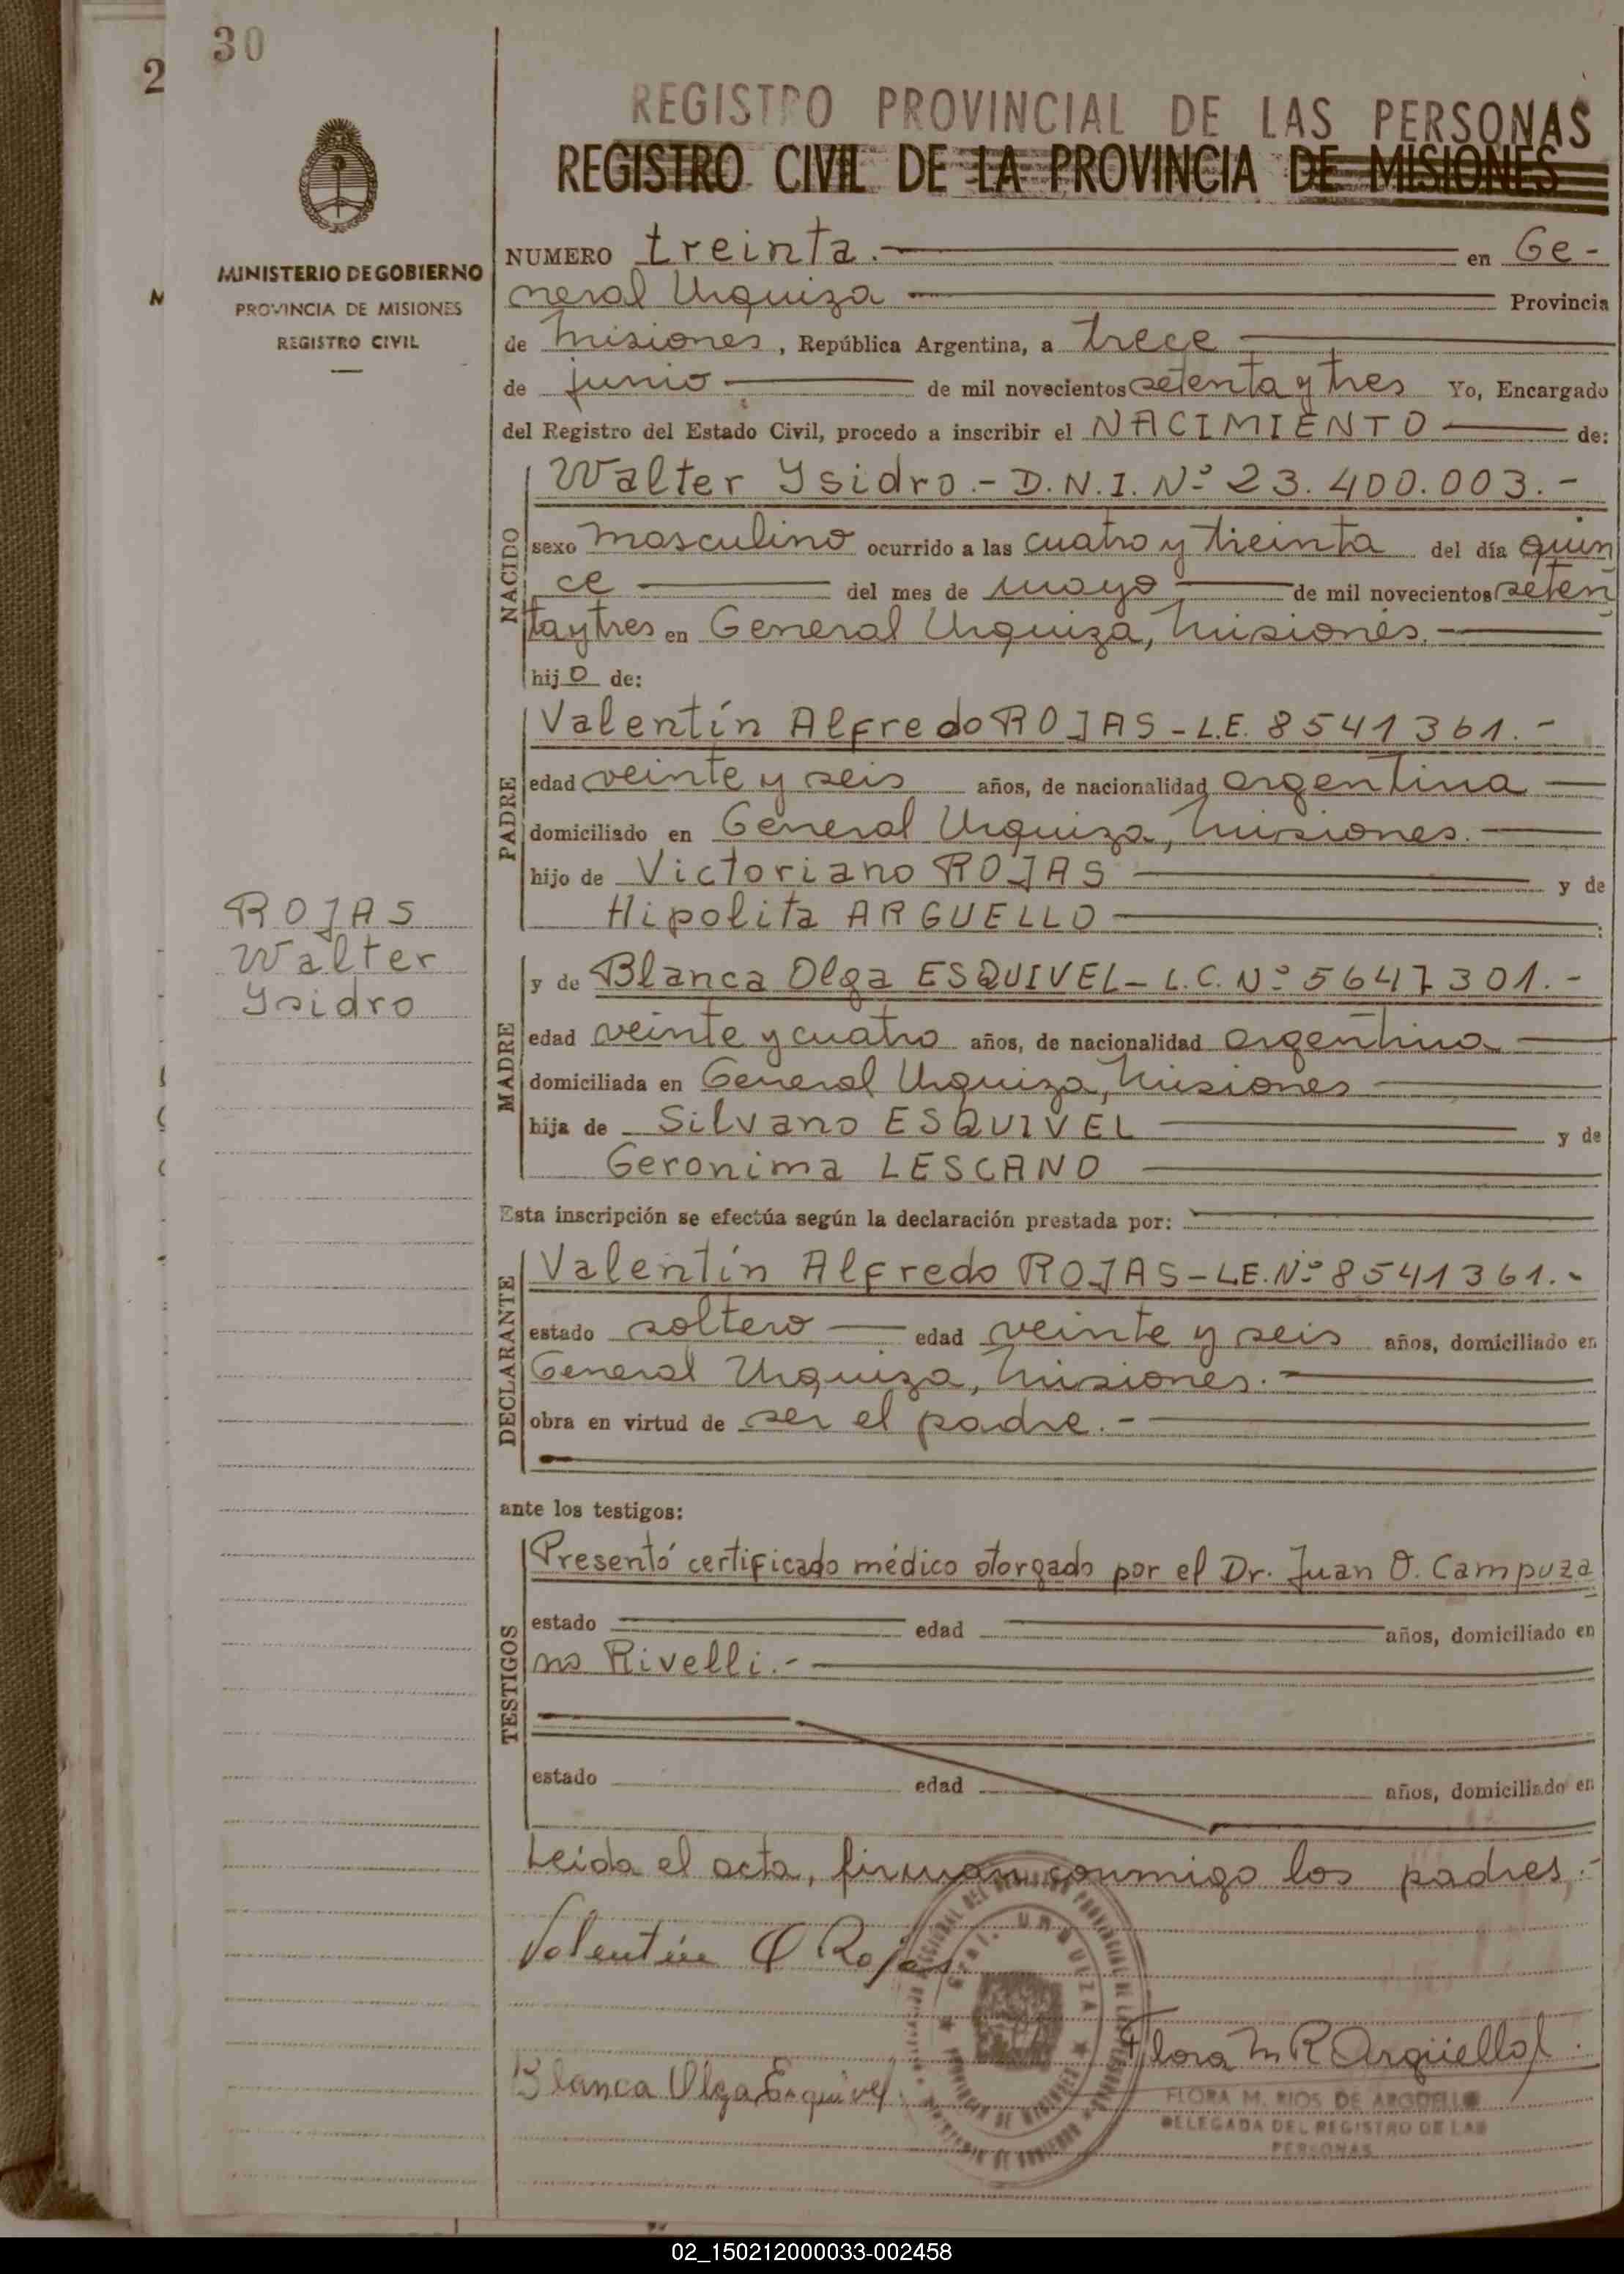 30
2
REGISTRO PROVINCIAL DE LAS PERSONAS
REGISTRO CIVIL DE LA PROVINCIA DE MISIONES
MINISTERIO DE GOBIERNO
PROVINCIA DE MISIONES
REGISTRO CIVIL
NUMERO treinta.- en Ge-
neral Urquiza Provincia
de Misiones, República Argentina, a trece
de junio de mil novecientos setenta y tres Yo, Encargado
del Registro del Estado Civil, procedo a inscribir el NACIMIENTO de:
NACIDO
Walter Ysidro.- D.N.I. Nº 23.400.003.-
sexo masculino ocurrido a las cuatro y treinta del día quin
ce del mes de mayo de mil novecientos seten
ta y tres en General Urquiza, Misiones.-
hijo de:
PADRE
Valentín Alfredo ROJAS - L.E. 8541361.-
edad veinte y seis años, de nacionalidad argentina
domiciliado en General Urquiza, Misiones.-
hijo de Victoriano ROJAS y de
Hipolita ARGUELLO
ROJAS
Walter
Ysidro
MADRE
y de Blanca Olga ESQUIVEL - L.C. Nº 5647301.-
edad veinte y cuatro años, de nacionalidad argentina
domiciliada en General Urquiza, Misiones
hija de Silvano ESQUIVEL y de
Geronima LESCANO
Esta inscripción se efectúa según la declaración prestada por:
DECLARANTE
Valentín Alfredo ROJAS - L.E. Nº 8541361.-
estado soltero edad veinte y seis años, domiciliado en
General Urquiza, Misiones.-
obra en virtud de ser el padre.-
ante los testigos:
TESTIGOS
Presentó certificado médico otorgado por el Dr. Juan O. Campuza
estado edad años, domiciliado en
no Rivelli.-
estado edad años, domiciliado en
Leida el acta, firman conmigo los padres.-
Valentín A Rojas
Flora M R Argüello
Blanca Olga Esquivel
FLORA M. RIOS DE ARGUELLO
DELEGADA DEL REGISTRO DE LAS
PERSONAS
02_150212000033-002458